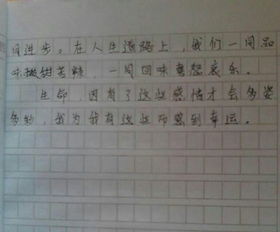 同进步。在人生道路上，我们一同品
味酸甜苦辣，一同回味喜怒哀乐。
生命，因有了这些感情才会多姿
多彩，我为我有这些而感到幸运。